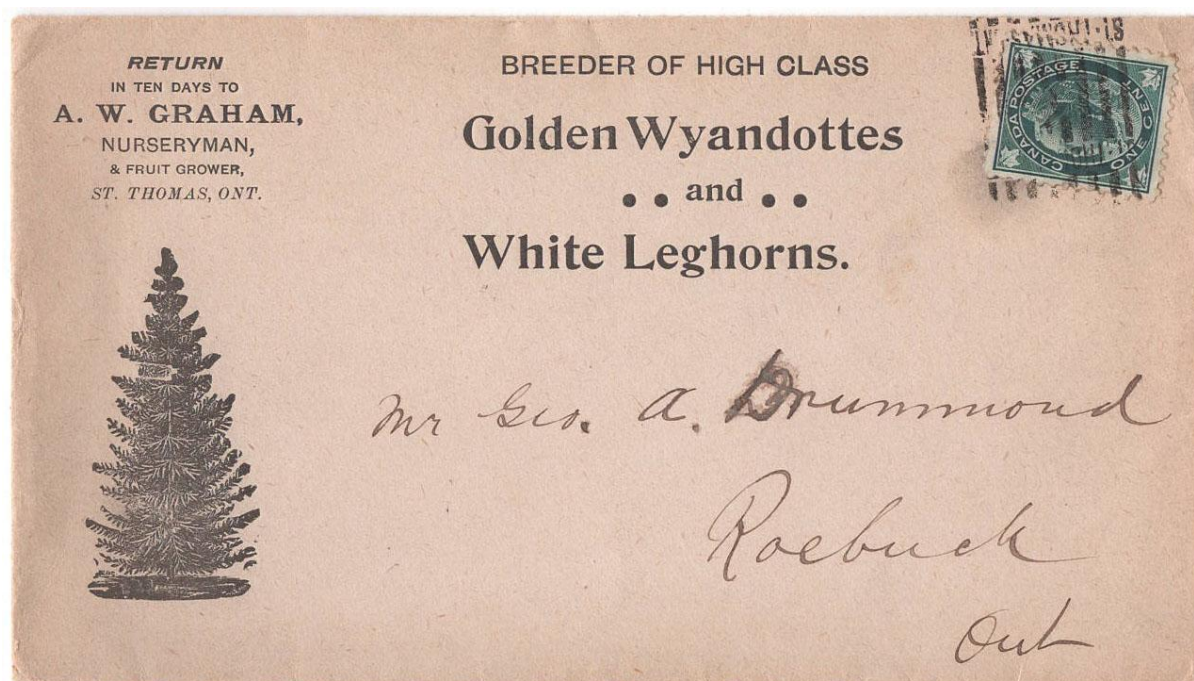 RETURN
IN TEN DAYS TO
A. W. GRAHAM,
NURSERYMAN,
& FRUIT GROWER,
ST. THOMAS, ONT.
BREEDER OF HIGH CLASS
Golden Wyandottes
• • and • •
White Leghorns.
CANADA POSTAGE
ONE CENT
ST. THOMAS
Mr Geo. A. Drummond
Roebuck
Ont